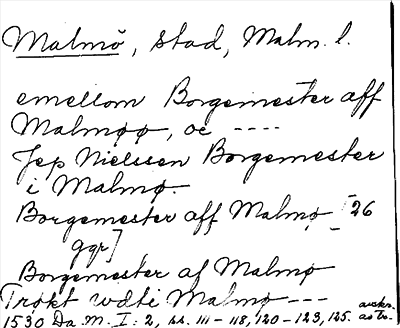 Malmö, stad, Malm. l.
emellom Borgemester aff
Malmøø, oc ----
Jep Nielssen Borgemester
i Malmø.
Borgemester aff Malmø [26
ggr]
Borgemester af Malmø
Trøkt wdti Malmø ---
1530 Da. M. I: 2, ss. 111-118, 120-123, 125.